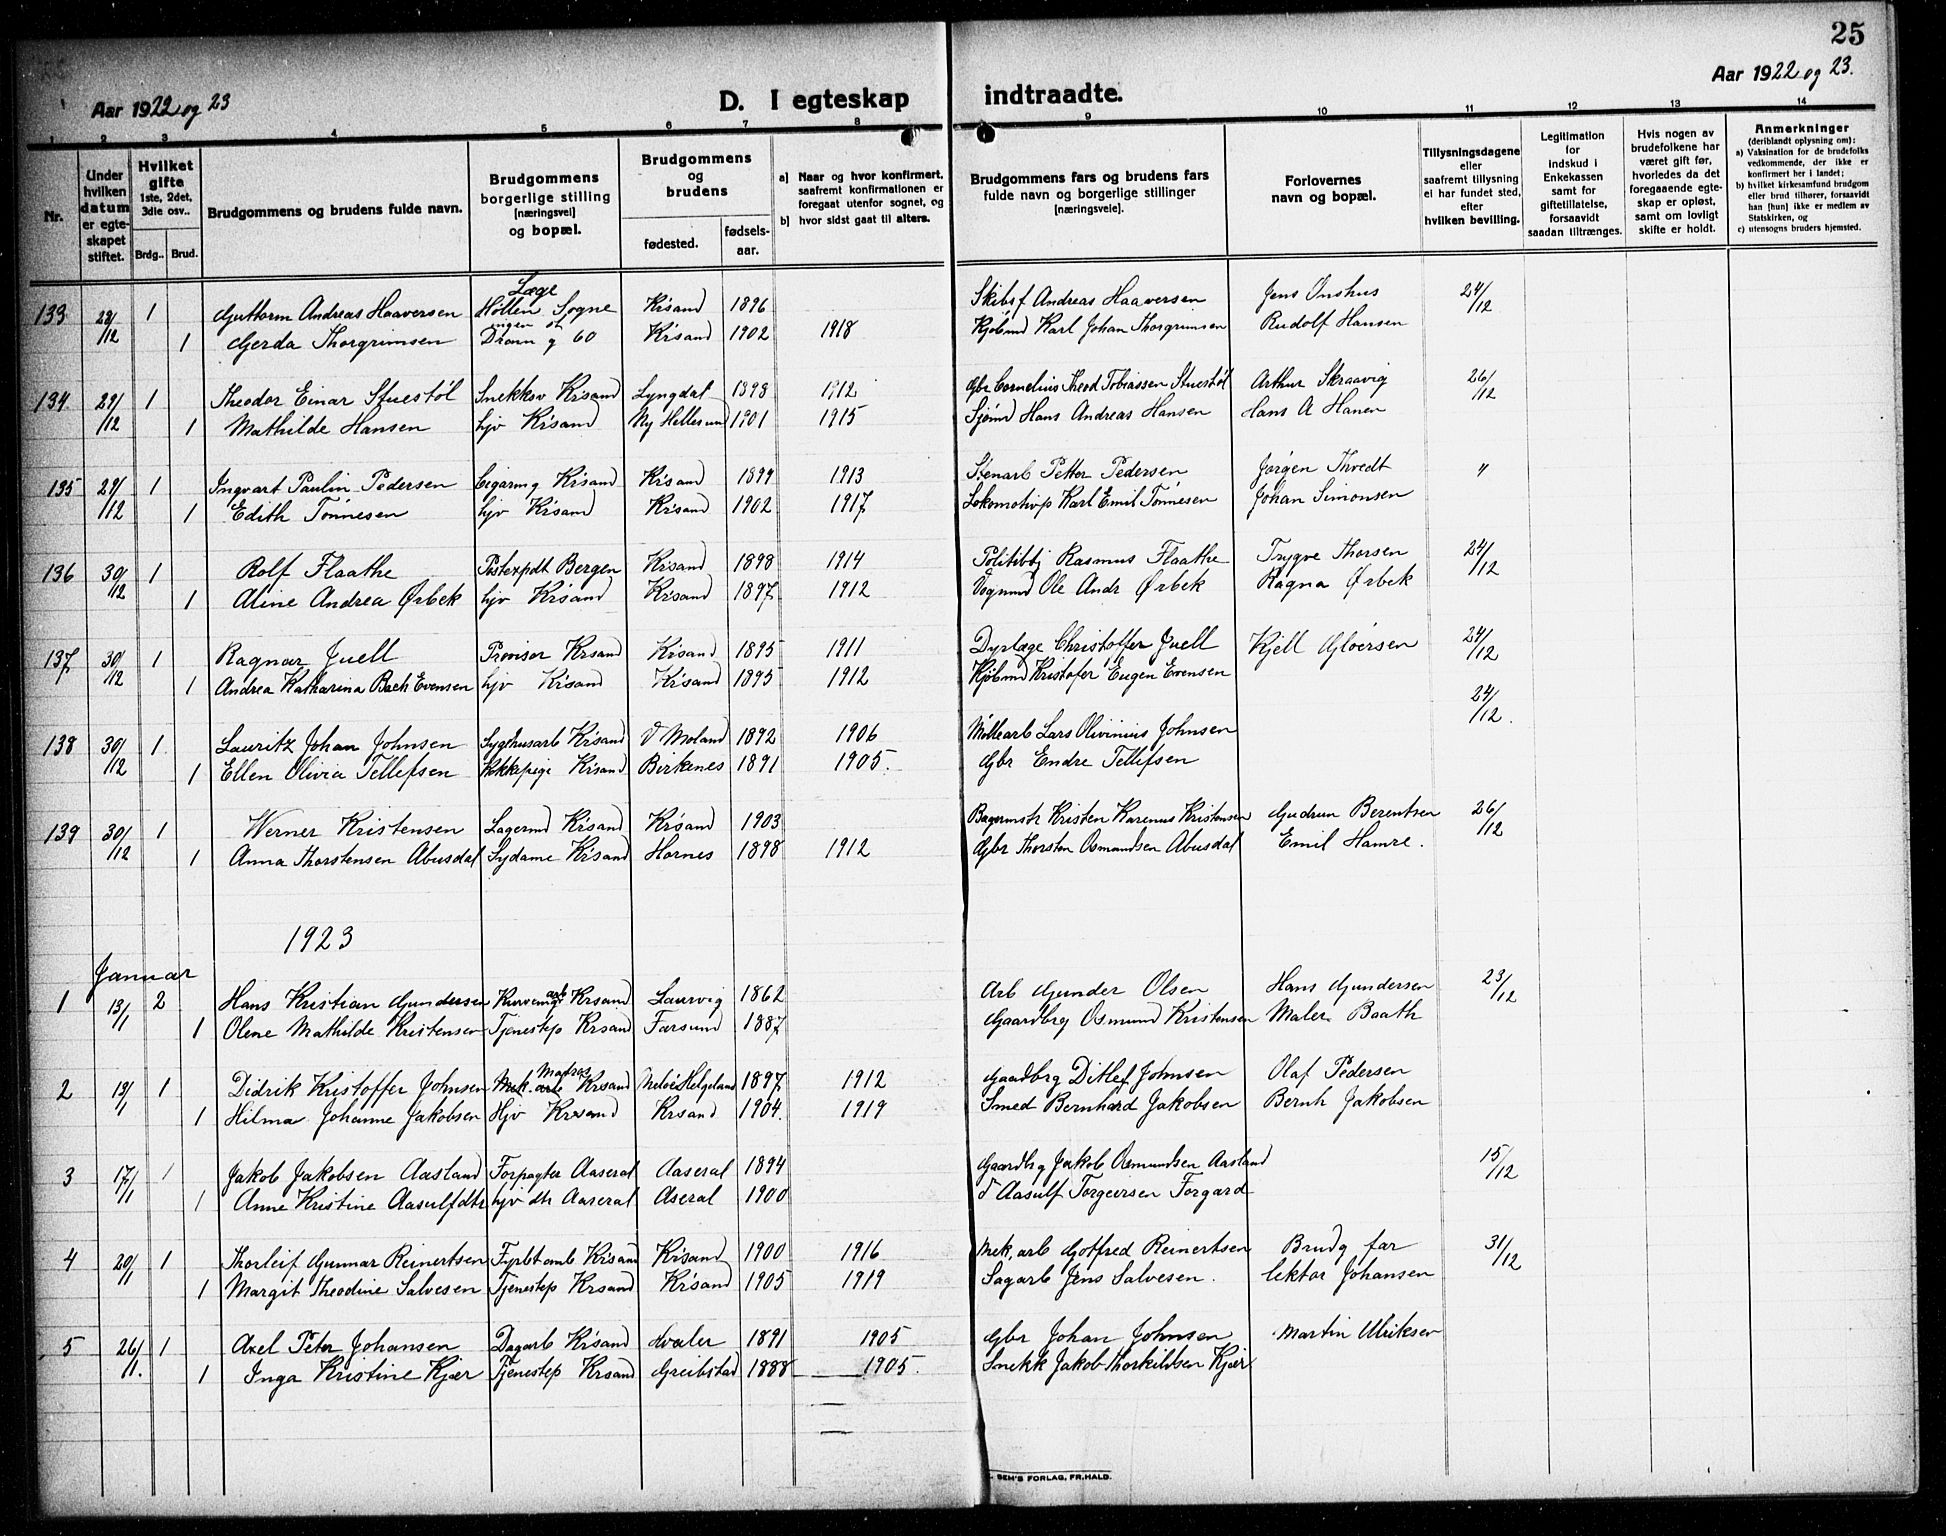 25
Aar 1922 og 23
D. I egteskap indtraadte.
Aar 1922 og 23.
1 2 3 4 5 6 7 8 9 10 11 12 13 14
Nr.
Under hvilken datum er egteskapet stiftet.
Hvilket gifte 1ste, 2det, 3die osv..
Brdg.. Brud.
Brudgommens og brudens fulde navn.
Brudgommens borgerlige stilling [næringsvei] og bopæl.
Brudgommens og brudens
fødested. fødsels-aar.
a) Naar og hvor konfirmert, saafremt konfirmationen er foregaat utenfor sognet, og
b) hvor sidst gaat til alters.
Brudgommens fars og brudens fars fulde navn og borgerlige stillinger [næringsveie].
Forlovernes navn og bopæl.
Tillysningsdagene eller saafremt tillysning ei har fundet sted, efter hvilken bevilling.
Legitimation for indskud i Enkekassen samt for giftetillatelse, forsaavidt saadan tiltrænges.
Hvis nogen av brudefolkene har været gift før, hvorledes da det foregaaende egteskap er opløst, samt om lovligt skifte er holdt.
Anmerkninger (deriblandt oplysning om):
a) Vaksination for de brudefolks vedkommende, der ikke er konfirmert her i landet;
b) hvilket kirkesamfund brudgom eller brud tilhører, forsaavidt han [hun] ikke er medlem av Statskirken, og
c) utensogns bruders hjemsted.
133 28/12 1 Guttorm Andreas Haaversen Læge Høllen Sogne Krsand 1896 Skibsf Andreas Haaversen Jens Ønshus 24/12
1 Gerda Thorgrimsen Dronn g 60 Krsand 1902 1918 Kjøbmd Karl Johan Thorgrimsen Rudolf Hansen
134 29/12 1 Theodor Einar Stuestøl Snekksv Krsand Lyngdal 1898 1912 Gbr Cornelius Theod Tobiassen Stuestøl Arthur Skraavig 26/12
1 Mathilde Hansen hjv Krsand Ny Hellesund 1901 1915 Sjømd Hans Andreas Hansen Hans A Hanen
135 29/12 1 Ingvart Paulin Pedersen Cigarmg Krsand Krsand 1899 1913 Stenarb Petter Pedersen Jørgen Thvedt "
1 Edith Tønnesen hjv Krsand Krsand 1902 1917 Lokomotivp Karl Emil Tønnesen Johan Simonsen
136 30/12 1 Rolf Flaathe Postexpdt Bergen Krsand 1898 1914 Politibtj Rasmus Flaathe Trygve Thorsen 24/12
1 Aline Andrea Ørbek hjv Krsand Krsand 1897 1912 Vognmd Ole Andr Ørbek Ragna Ørbek
137 30/12 1 Ragnar Juell Provisor Krsand Krsand 1895 1911 Dyrlæge Christoffer Juell Kjell Gløersen 24/12
1 Andrea Katharina Bach Evensen hjv Krsand Krsand 1895 1912 Kjøbmd Kristofer Eugen Evensen
24/12.
138 30/12 1 Lauritz Johan Johnsen Sygehusarb Krsand Ø Moland 1892 1906 Møllearb Lars Olivinius Johnsen
1 Ellen Olivia Tellefsen Kokkepige Krsand Birkenes 1891 1905. Gbr Endre Tellefsen
139 30/12 1 Werner Kristensen Lagermd Krsand Krsand 1903 Bagermstr Kristen Karenus Kristensen Gudrun Berentsen 26/12
1 Anna Thorstensen Abusdal Sydame Krsand Hornes 1898 1912 Gbr Thorsten Osmundsen Abusdal Emil Hamre.
1923
Januar
1 13/1 2 Hans Kristian Gundersen Kurvemgr arb Krsand Laurvig 1862 Arb Gunder Olsen Hans Gundersen 23/12
1 Olene Mathilde Kristensen Tjenestep Krsand Farsund 1887 Gaardbrg Osmund Kristensen Maler Baath
2 13/1 1 Didrik Kristoffer Johnsen Mek. arb Matros Krsand Meløi Helgeland 1897 1912 Gaardbrg Ditlef Johnsen Olaf Pedersen
1 Hilma Johanne Jakobsen Hjv Krsand Krsand 1904. 1919 Smed Bernhard Jakobsen Bernh Jakobsen
3 17/1 1 Jakob Jakobsen Aasland Forpagter Aaseral Aaseral 1894 Gaardbrg Jakob Osmundsen Aasland 15/12
1 Anne Kristine Aasulfdtr hjv dtr Aaseral Aseral 1900 d Aasulf Torgeirsen Forgard
4 20/1 1 Thorleif Gunnar Reinertsen Fyrbt omb Krsand Krsand 1900 1916 Mek, arb Gotfred Reinertsen Brudg far 31/12
1 Margit Theodine Salvesen Tjenestep Krsand Krsand 1905 1919 Sagarb Jens Salvesen. lektor Johansen
5 26/1. 1 Axel Peter Johansen Dagarb Krsand Hvaler 1891 1905 Gbr Johan Johnsen Martin Ulriksen
1 Inga Kristine Kjær Tjenestep Krsand Greibstad 1888 1905. Snekk Jakob Thorkildsen Kjær
SEM'S FORLAG, FR.HALD.